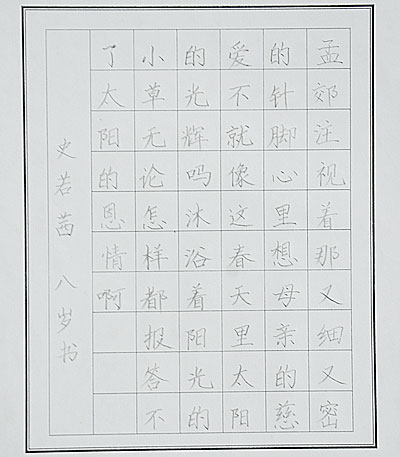 孟郊注视着那又细又密
的针脚心里想母亲的慈
爱不就像这春天里太阳
的光辉吗沐浴着阳光的
小草无论怎样都报答不
了太阳的恩情啊
史若茜 八岁书